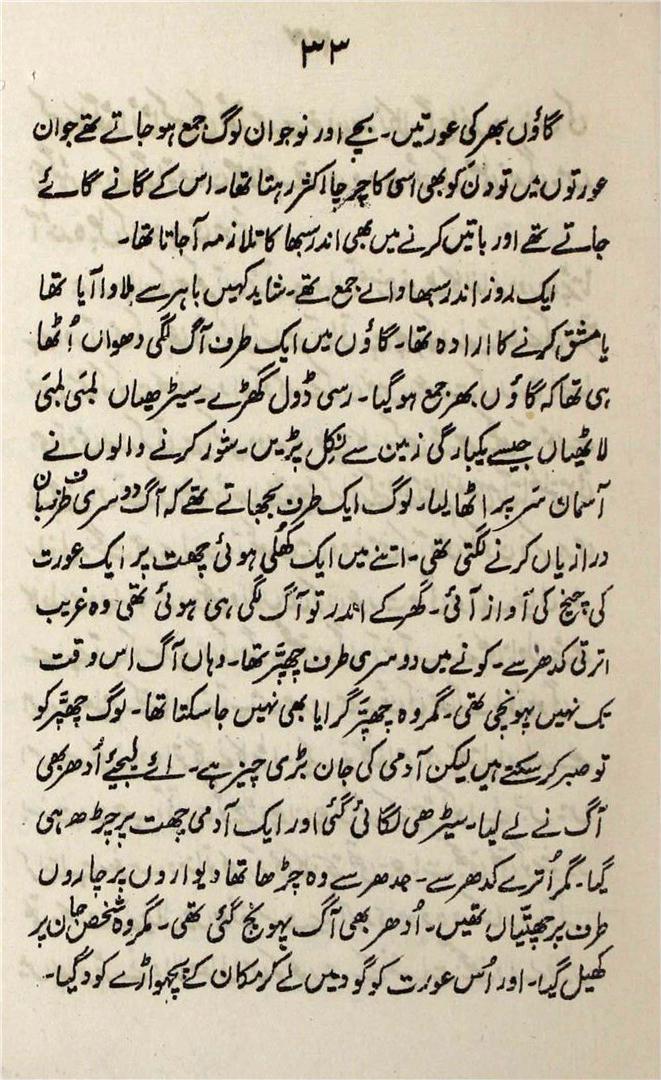 ۳۳
گاؤں بھر کی عورتیں۔ بچے اور نوجوان لوگ جمع ہو جاتے تھے جوان
عورتوں میں تو دن کو بھی اسی کا چرچا اکثر رہتا تھا۔ اس کے گانے گائے
جاتے تھے اور باتیں کرنے میں بھی اندر سبھا کا تلازمہ آ جاتا تھا۔
ایک روز اندر سبھا والے جمع تھے۔ شاید کہیں باہر سے بلاوا آیا تھا
یا مشق کرنے کا ارادہ تھا۔ گاؤں میں ایک طرف آگ لگی دھواں اُٹھا
ہی تھا کہ گاؤں بھر جمع ہو گیا۔ رسی ڈول گھڑے۔ سیڑھیاں لمبی لمبی
لاٹھیاں جیسے یکبارگی زمین سے نکل پڑیں۔ شور کرنے والوں نے
آسمان سر پر اٹھا لیا۔ لوگ ایک طرف بجھاتے تھے کہ آگ دوسری طرف زبان
درازیاں کرنے لگتی تھی۔ اتنے میں ایک کھلی ہوئی چھت پر ایک عورت
کی چیخ کی آواز آئی۔ گھر کے اندر تو آگ لگی ہی ہوئی تھی وہ غریب
اترتی کدھر سے۔ کونے میں دوسری طرف چھپّر تھا۔ وہاں آگ اس وقت
تک نہیں پہونچی تھی۔ مگر وہ چھپّر گرایا بھی نہیں جا سکتا تھا۔ لوگ چھپّر کو
تو صبر کر سکتے ہیں لیکن آدمی کی جان بڑی چیز ہے۔ ائے لیجئے اُدھر بھی
آگ نے لے لیا۔ سیڑھی لگائی گئی اور ایک آدمی چھت پر چڑھ ہی
گیا۔ مگر اُترے کدھر سے۔ جدھر سے وہ چڑھا تھا دیواروں پر چاروں
طرف پرچھتیاں تھیں۔ اُدھر بھی آگ پہونچ گئی تھی۔ مگر وہ شخص جان پر
کھیل گیا۔ اور اُس عورت کو گود میں لے کر مکان کے پچھواڑے کود گیا۔